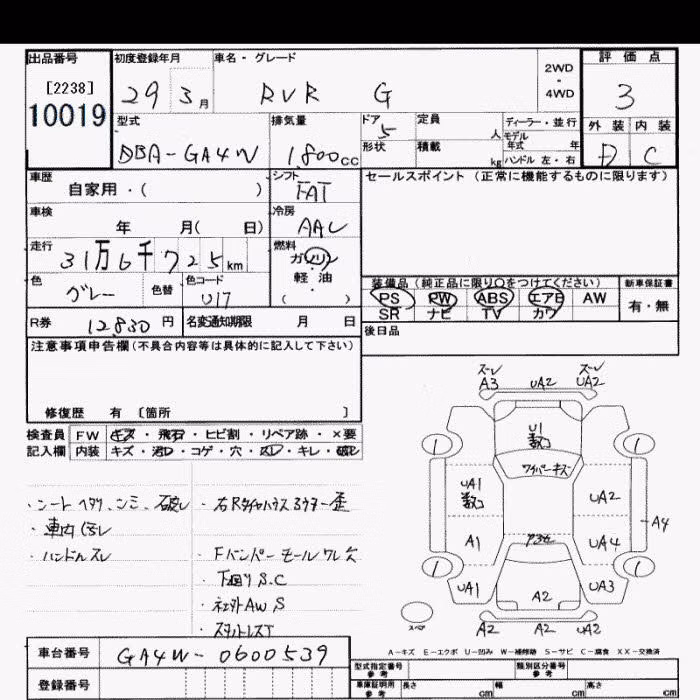 出品番号
[2238]
10019
初度登録年月
29 3月
車名・グレード
RVR G
2WD
・
4WD
評価点
3
外装 内装
D C
型式
DBA-GA4W
排気量
1,800cc
ドア
5
形状
定員
人
積載
kg
ディーラー・並行
モデル年式 年
ハンドル 左・右
車歴
自家用・( )
シフト
FAT
車検
年 月( 日)
冷房
AAC
走行
31万6千725km
燃料
ガソリン
軽・油
( )
色
グレー
色替
色コード
U17
R券
12830円
名変通知期限 月 日
セールスポイント(正常に機能するものに限ります)
装備品(純正品に限り○をつけてください)
PS PW ABS エアB AW
SR ナビ TV カワ
新車保証書
有・無
後日品
注意事項申告欄(不具合内容等は具体的に記入して下さい)
修復歴 有 〔箇所 〕
検査員
記入欄
FW キズ・飛石・ヒビ割・リペア跡・×要
内装 キズ・汚レ・コゲ・穴・スレ・キレ・破レ
・シート ヘタリ、シミ、破レ
・車内汚レ
・ハンドルスレ
・Fバンパー モール ワレ 欠
・下回りS.C
・社外AW S
A3 UA2 UA2
U1
ワイパーキズ
UA1
UA2
A1
UA4
A4
UA1
A2
UA3
スペア
A2 A2 UA2
A-キズ E-エクボ U-凹み W-補修跡 S-サビ C-腐食 XX-交換済
車台番号
GA4W-0600539
登録番号
型式指定番号
参考
類別区分番号
参考
車庫証明用
参考
長さ cm
幅 cm
高さ cm